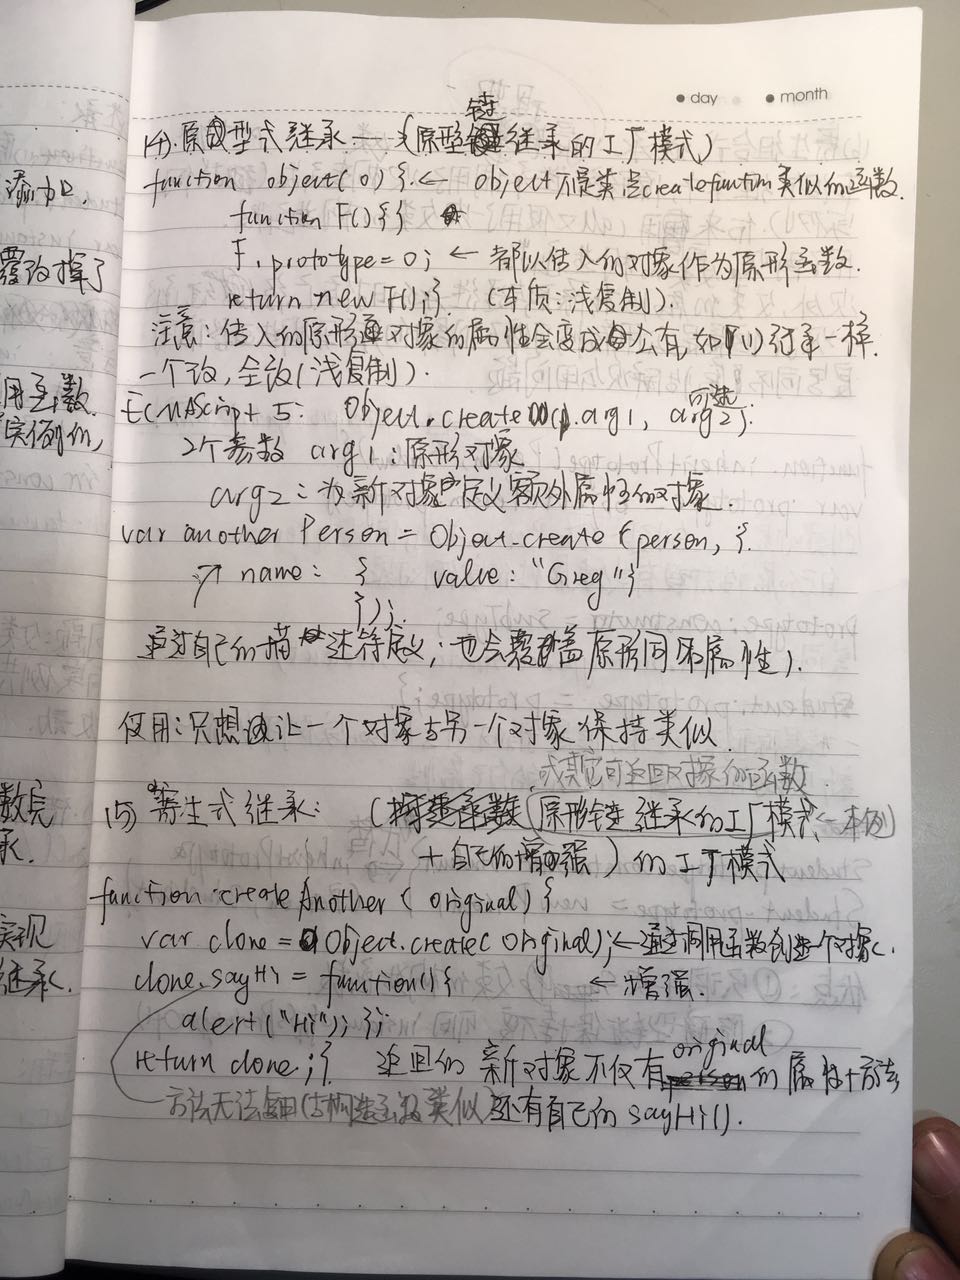 day month
(4). 原型式继承 — (原型链继承的工厂模式)
function object(o) { ← object不是类是createfunction类似的函数.
function F(){}
F.prototype = o; ← 都以传入的对象作为原形函数.
return new F();} (本质:浅复制).
注意: 传入的原形对象的属性会变成公有,如(1)继承一样.
一个改,全改(浅复制).
ECMAScript 5: Object.create(arg1, arg2);
可选
2个参数 arg1: 原形对象.
arg2: 为新对象定义额外属性的对象.
var another Person = Object.create(person, {
↗ name: { value: "Greg"}
});
通过自己的描述符定义; 也会覆盖原形同名属性).
使用: 只想让一个对象与另一个对象保持类似.
或其它可返回对象的函数
(5) 寄生式继承: (原形链继承的工厂模式 ← 本例)
+ 自己的增强) 的工厂模式
function createAnother( original) {
var clone = Object.create( original); ← 通过调用函数创造一个对象.
clone.sayHi = function(){ ← 增强.
alert("Hi"); };
return clone;} 返回的新对象不仅有original的属性+方法
方法无法复用(与构造函数类似) 还有自己的sayHi().
添加.
覆改掉了
用函数.
实例的,
数完
承.
实现
继承.